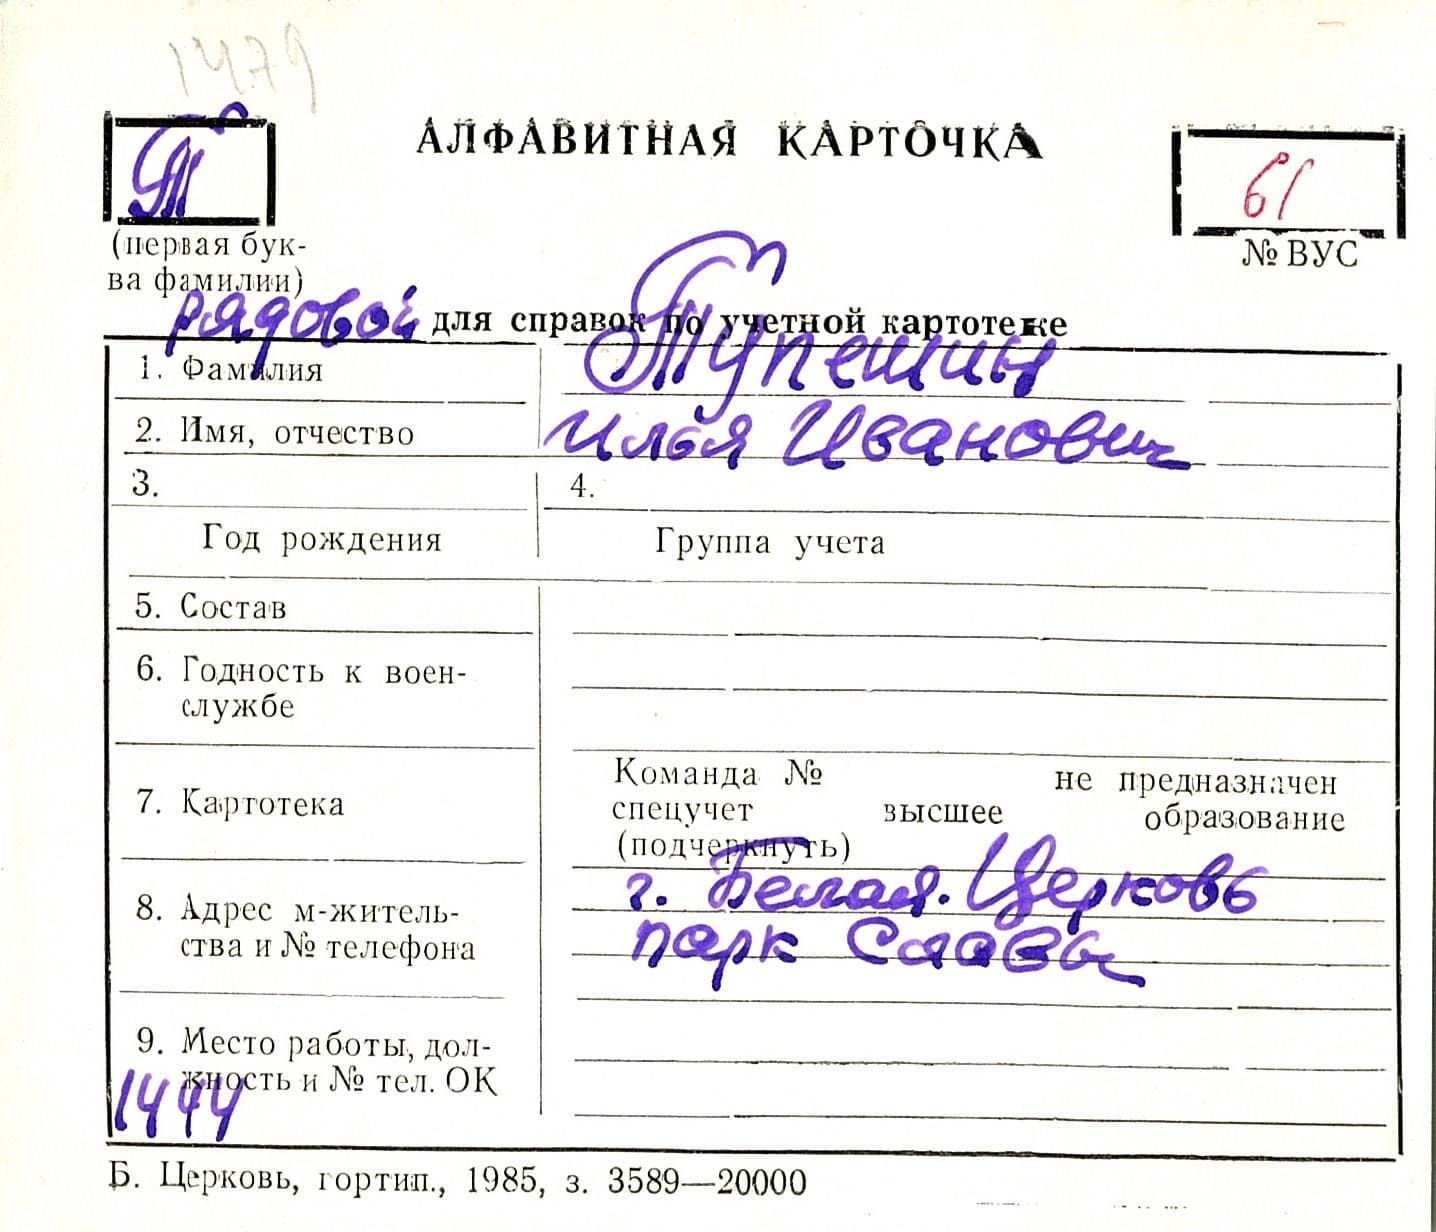 1479
Т
АЛФАВИТНАЯ КАРТОЧКА
61
(первая бук-
ва фамилии)
№ ВУС
рядовой для справок по учетной картотеке
1. Фамилия Тупешин
2. Имя, отчество Илья Иванович
3. 4.
Год рождения Группа учета
5. Состав
6. Годность к воен-
службе
7. Картотека
Команда № не предназначен
спецучет высшее образование
(подчеркнуть)
8. Адрес м-житель-
ства и № телефона
г. Белая. Церковь
парк Славы
9. Место работы, дол-
жность и № тел. ОК
1444
Б. Церковь, гортип., 1985, з. 3589—20000